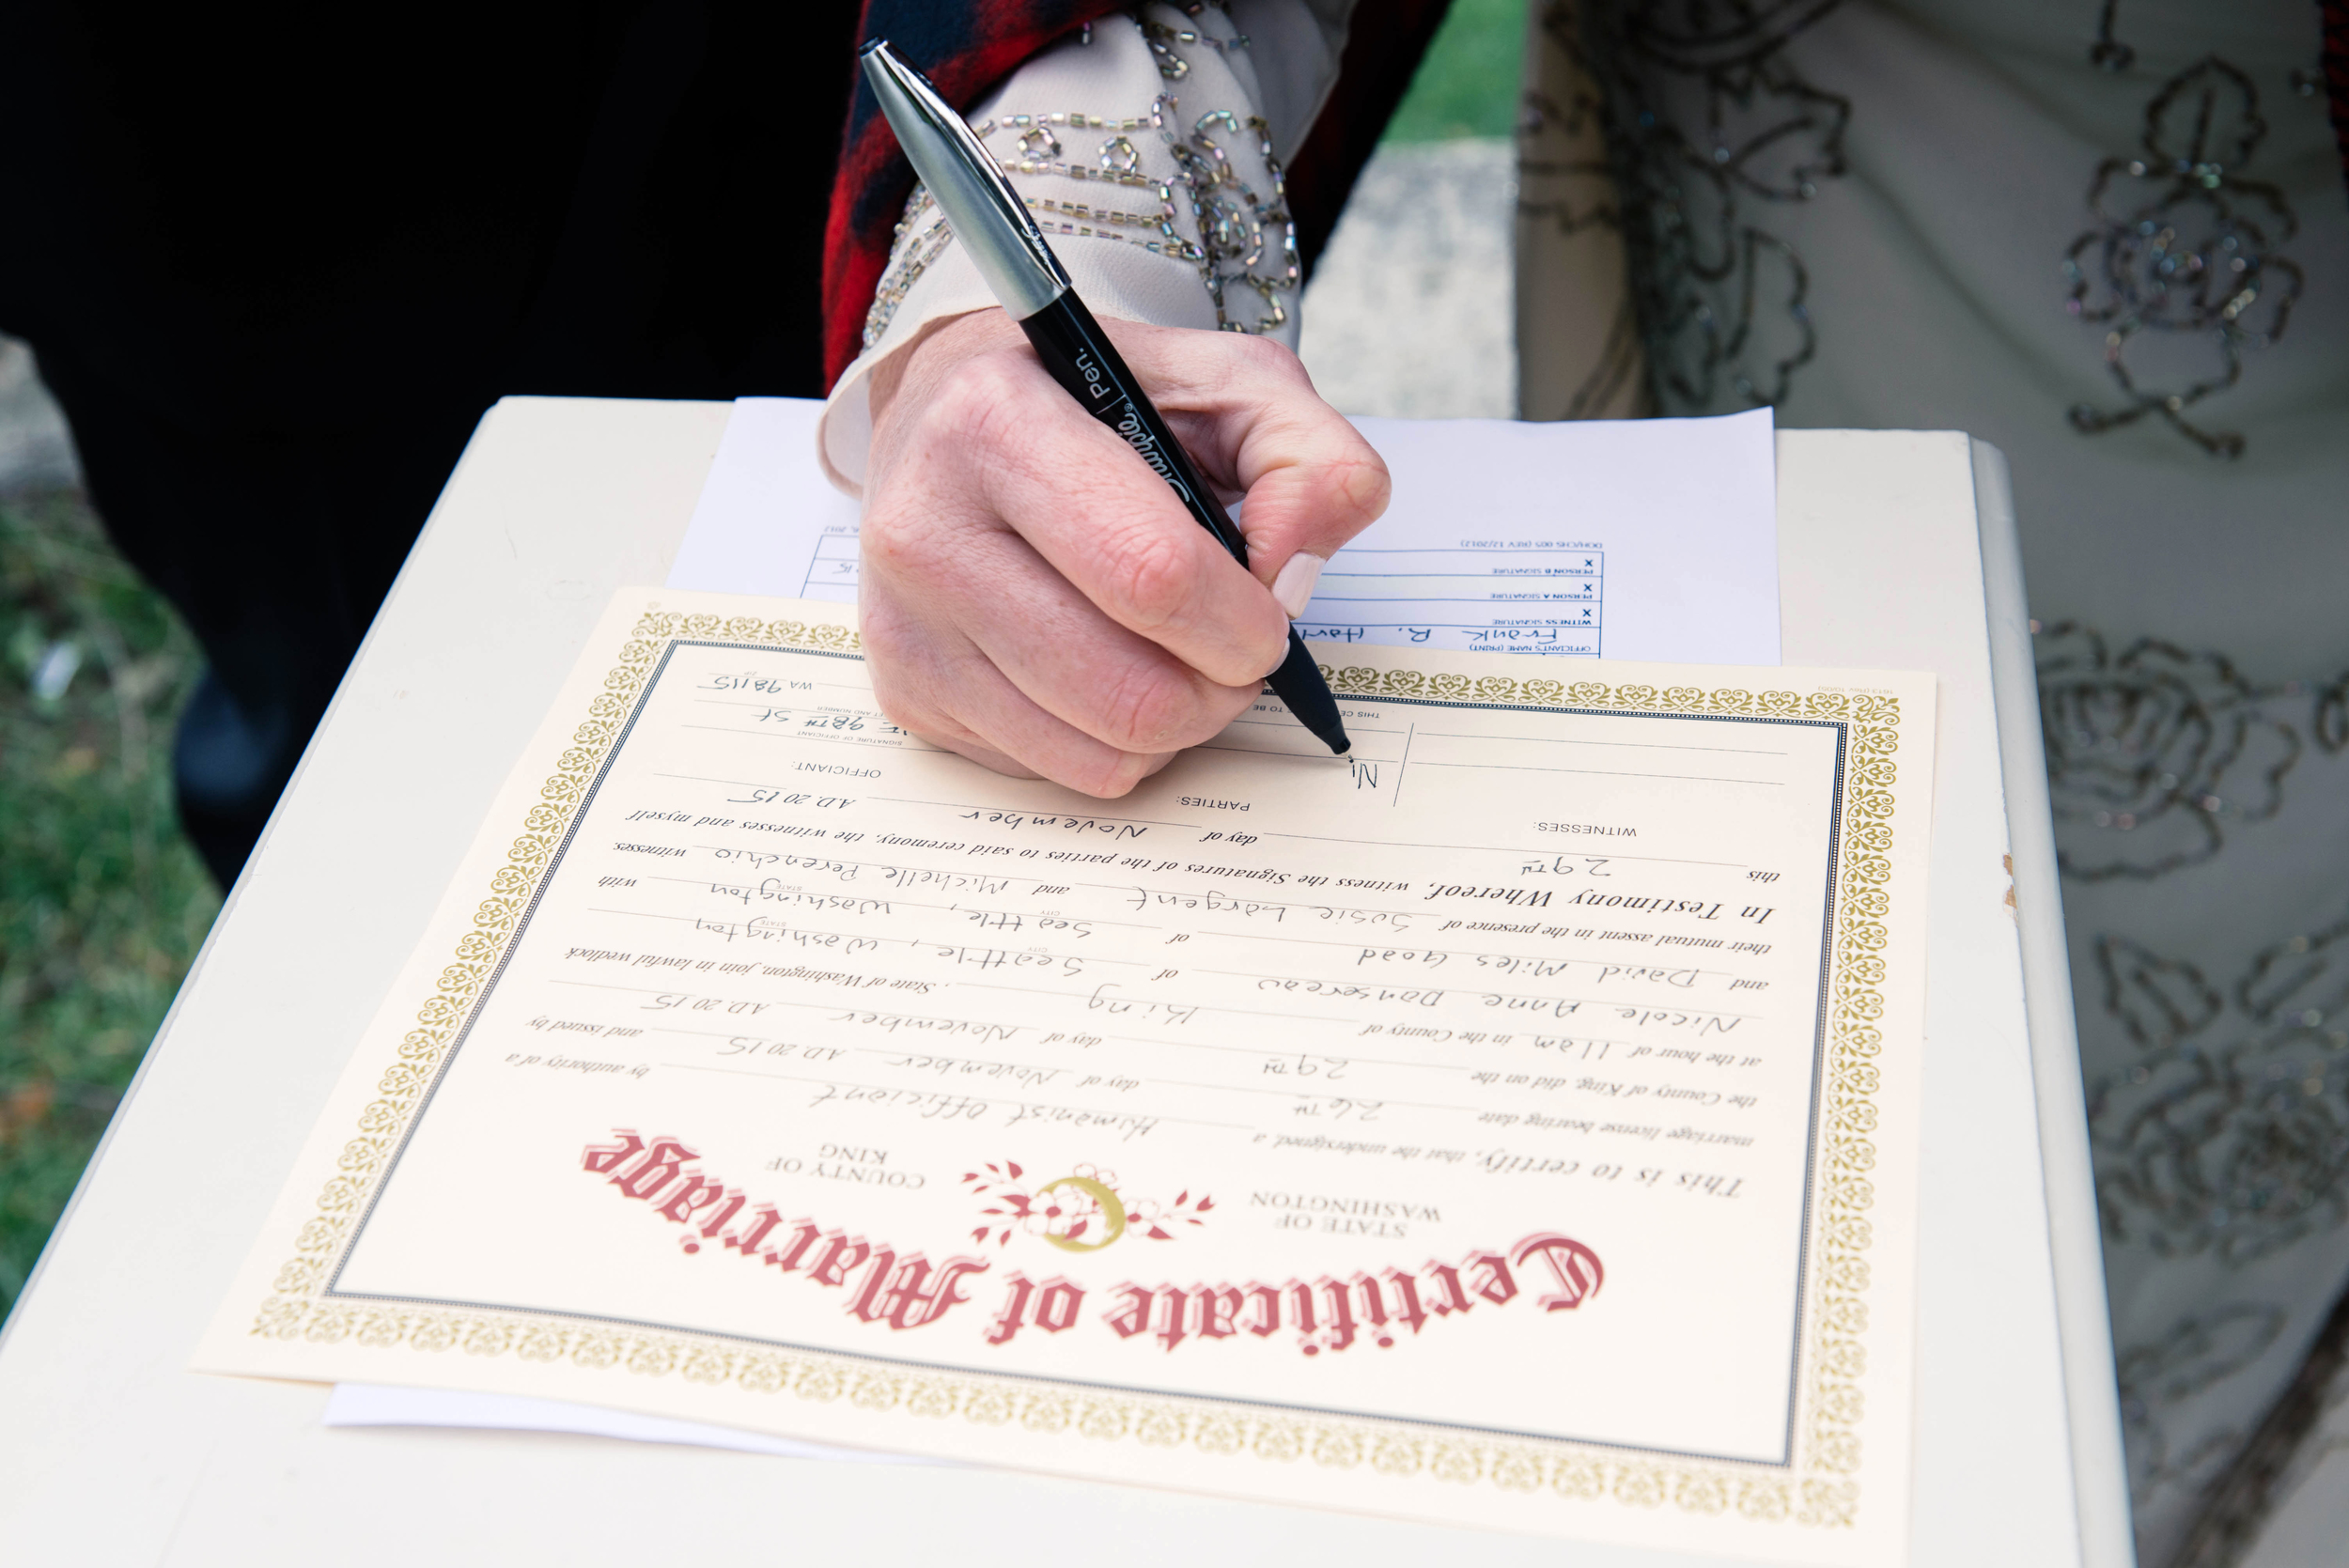 Certificate of Marriage
STATE OF
WASHINGTON
COUNTY OF
KING
This is to certify, that the undersigned, a Humanist Officiant by authority of a
marriage license bearing date 26TH day of November A.D. 2015 and issued by
the County of King, did on the 29TH day of November A.D. 2015
at the hour of 11am in the County of King, State of Washington, join in lawful wedlock
Nicole Anne Dansereau of Seattle, Washington
CITY STATE
and David Miles Goad of Seattle, Washington with
CITY STATE
their mutual assent in the presence of Susie Largent and Michelle Perenchio witnesses.
In Testimony Whereof, witness the Signatures of the parties to said ceremony, the witnesses and myself
this 29TH day of November A.D. 2015
WITNESSES:
PARTIES:
OFFICIANT:
Ni
SIGNATURE OF OFFICIANT
98TH St
WA 98115
THIS TO BE
OFFICIANT'S NAME (PRINT)
Frank R.
WITNESS SIGNATURE
X
PERSON A SIGNATURE
X
PERSON B SIGNATURE
X
DOH/CHS 005 (REV 12/2012)
Sharpie® Pen.
Sharpie